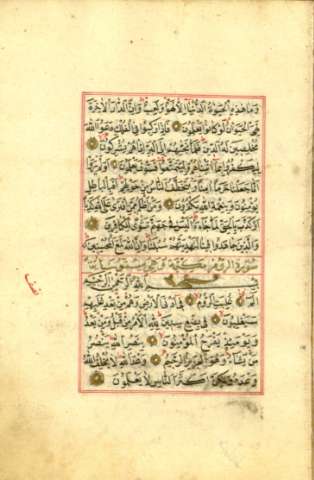 وَمَا هٰذِهِ الْحَيٰوةُ الدُّنْيَا اِلَّا لَهْوٌ وَلَعِبٌ وَاِنَّ الدَّارَ الْاٰخِرَةَ
لَهِيَ الْحَيَوَانُ لَوْ كَانُوا يَعْلَمُونَ فَاِذَا رَكِبُوا فِي الْفُلْكِ دَعَوُا اللّٰهَ
مُخْلِصِينَ لَهُ الدِّينَ فَلَمَّا نَجّٰيهُمْ اِلَى الْبَرِّ اِذَا هُمْ يُشْرِكُونَ
لِيَكْفُرُوا بِمَا اٰتَيْنَاهُمْ وَلِيَتَمَتَّعُوا فَسَوْفَ يَعْلَمُونَ اَوَلَمْ يَرَوْا
اَنَّا جَعَلْنَا حَرَمًا اٰمِنًا وَيُتَخَطَّفُ النَّاسُ مِنْ حَوْلِهِمْ اَفَبِالْبَاطِلِ
يُؤْمِنُونَ وَبِنِعْمَةِ اللّٰهِ يَكْفُرُونَ وَمَنْ اَظْلَمُ مِمَّنِ افْتَرٰى عَلَى اللّٰهِ كَذِبًا
اَوْ كَذَّبَ بِالْحَقِّ لَمَّا جَاءَهُ اَلَيْسَ فِي جَهَنَّمَ مَثْوًى لِلْكَافِرِينَ
وَالَّذِينَ جَاهَدُوا فِينَا لَنَهْدِيَنَّهُمْ سُبُلَنَا وَاِنَّ اللّٰهَ لَمَعَ الْمُحْسِنِينَ
سورة الروم مكية وهي ستون
بِسْمِ اللّٰهِ الرَّحْمٰنِ الرَّحِيمِ
الٓمٓ غُلِبَتِ الرُّومُ فِي اَدْنَى الْاَرْضِ وَهُمْ مِنْ بَعْدِ غَلَبِهِمْ
سَيَغْلِبُونَ فِي بِضْعِ سِنِينَ لِلّٰهِ الْاَمْرُ مِنْ قَبْلُ وَمِنْ بَعْدُ
وَيَوْمَئِذٍ يَفْرَحُ الْمُؤْمِنُونَ بِنَصْرِ اللّٰهِ يَنْصُرُ
مَنْ يَشَاءُ وَهُوَ الْعَزِيزُ الرَّحِيمُ وَعْدَ اللّٰهِ لَا يُخْلِفُ اللّٰهُ
وَعْدَهُ وَلٰكِنَّ اَكْثَرَ النَّاسِ لَا يَعْلَمُونَ